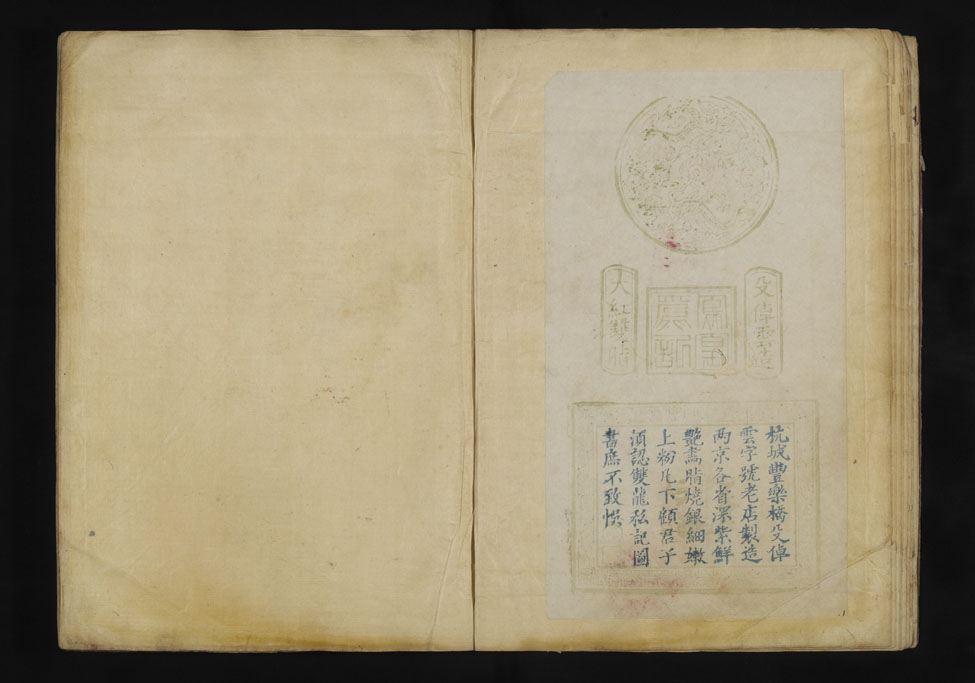 殳倬雲造
大紅雙
杭城豐樂橋殳倬
雲字號老店製造
两京各省深紫鮮
艷畵脂燒銀細嫩
上粉凡下顧君子
須認雙龍私記圖
書庻不致悮